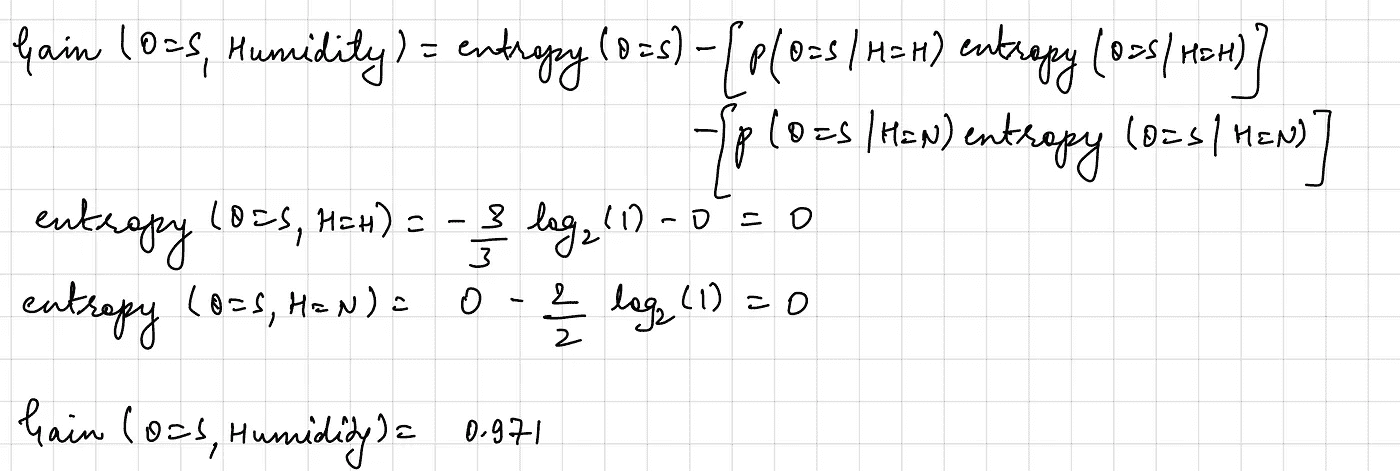 Gain (O=S, Humidity) = entropy (O=S) - [p(O=S | H=H) entropy (O=S | H=H)]
- [p (O=S | H=N) entropy (O=S | H=N)]
entropy (O=S, H=H) = - 3/3 log₂(1) - 0 = 0
entropy (O=S, H=N) = 0 - 2/2 log₂(1) = 0
Gain (O=S, Humidity) = 0.971